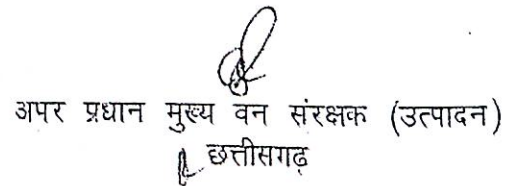 अपर प्रधान मुख्य वन संरक्षक (उत्पादन)
छत्तीसगढ़